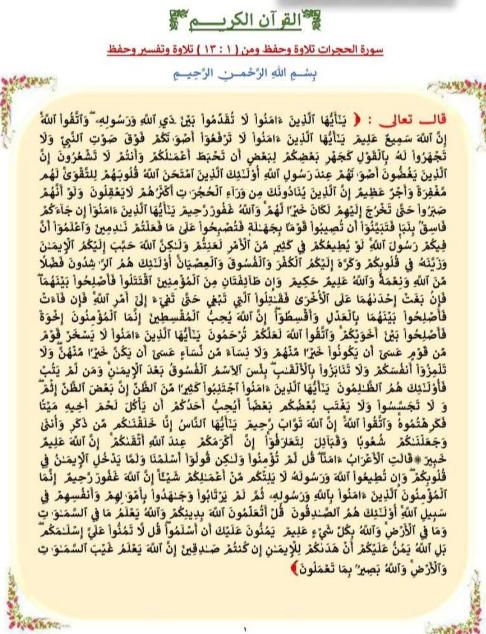 القرآن الكريم
سورة الحجرات تلاوة وحفظ ومن ( ١ : ١٣ ) تلاوة وتفسير وحفظ
بِسْمِ اللهِ الرَّحْمنِ الرَّحِيمِ
قال تعالى : ﴿ يَـٰٓأَيُّهَا الَّذِينَ ءَامَنُوا۟ لَا تُقَدِّمُوا۟ بَيْنَ يَدَيِ اللَّهِ وَرَسُولِهِۦ ۖ وَاتَّقُوا۟ اللَّهَ ۚ
إِنَّ اللَّهَ سَمِيعٌ عَلِيمٌ يَـٰٓأَيُّهَا الَّذِينَ ءَامَنُوا۟ لَا تَرْفَعُوٓا۟ أَصْوَٰتَكُمْ فَوْقَ صَوْتِ النَّبِيِّ وَلَا
تَجْهَرُوا۟ لَهُۥ بِالْقَوْلِ كَجَهْرِ بَعْضِكُمْ لِبَعْضٍ أَن تَحْبَطَ أَعْمَـٰلُكُمْ وَأَنتُمْ لَا تَشْعُرُونَ إِنَّ
الَّذِينَ يَغُضُّونَ أَصْوَٰتَهُمْ عِندَ رَسُولِ اللَّهِ أُو۟لَـٰٓئِكَ الَّذِينَ امْتَحَنَ اللَّهُ قُلُوبَهُمْ لِلتَّقْوَىٰ لَهُم
مَّغْفِرَةٌ وَأَجْرٌ عَظِيمٌ إِنَّ الَّذِينَ يُنَادُونَكَ مِن وَرَآءِ الْحُجُرَٰتِ أَكْثَرُهُمْ لَا يَعْقِلُونَ وَلَوْ أَنَّهُمْ
صَبَرُوا۟ حَتَّىٰ تَخْرُجَ إِلَيْهِمْ لَكَانَ خَيْرًا لَّهُمْ ۚ وَاللَّهُ غَفُورٌ رَّحِيمٌ يَـٰٓأَيُّهَا الَّذِينَ ءَامَنُوٓا۟ إِن جَآءَكُمْ
فَاسِقٌۢ بِنَبَإٍ فَتَبَيَّنُوٓا۟ أَن تُصِيبُوا۟ قَوْمًۢا بِجَهَـٰلَةٍ فَتُصْبِحُوا۟ عَلَىٰ مَا فَعَلْتُمْ نَـٰدِمِينَ وَاعْلَمُوٓا۟ أَنَّ
فِيكُمْ رَسُولَ اللَّهِ ۚ لَوْ يُطِيعُكُمْ فِي كَثِيرٍ مِّنَ الْأَمْرِ لَعَنِتُّمْ وَلَـٰكِنَّ اللَّهَ حَبَّبَ إِلَيْكُمُ الْإِيمَـٰنَ
وَزَيَّنَهُۥ فِي قُلُوبِكُمْ وَكَرَّهَ إِلَيْكُمُ الْكُفْرَ وَالْفُسُوقَ وَالْعِصْيَانَ ۚ أُو۟لَـٰٓئِكَ هُمُ الرَّٰشِدُونَ فَضْلًا
مِّنَ اللَّهِ وَنِعْمَةً ۚ وَاللَّهُ عَلِيمٌ حَكِيمٌ وَإِن طَآئِفَتَانِ مِنَ الْمُؤْمِنِينَ اقْتَتَلُوا۟ فَأَصْلِحُوا۟ بَيْنَهُمَا ۖ
فَإِنۢ بَغَتْ إِحْدَىٰهُمَا عَلَى الْأُخْرَىٰ فَقَـٰتِلُوا۟ الَّتِي تَبْغِي حَتَّىٰ تَفِيٓءَ إِلَىٰٓ أَمْرِ اللَّهِ ۚ فَإِن فَآءَتْ
فَأَصْلِحُوا۟ بَيْنَهُمَا بِالْعَدْلِ وَأَقْسِطُوٓا۟ ۖ إِنَّ اللَّهَ يُحِبُّ الْمُقْسِطِينَ إِنَّمَا الْمُؤْمِنُونَ إِخْوَةٌ
فَأَصْلِحُوا۟ بَيْنَ أَخَوَيْكُمْ ۚ وَاتَّقُوا۟ اللَّهَ لَعَلَّكُمْ تُرْحَمُونَ يَـٰٓأَيُّهَا الَّذِينَ ءَامَنُوا۟ لَا يَسْخَرْ قَوْمٌ
مِّن قَوْمٍ عَسَىٰٓ أَن يَكُونُوا۟ خَيْرًا مِّنْهُمْ وَلَا نِسَآءٌ مِّن نِّسَآءٍ عَسَىٰٓ أَن يَكُنَّ خَيْرًا مِّنْهُنَّ ۖ وَلَا
تَلْمِزُوٓا۟ أَنفُسَكُمْ وَلَا تَنَابَزُوا۟ بِالْأَلْقَـٰبِ ۖ بِئْسَ الِاسْمُ الْفُسُوقُ بَعْدَ الْإِيمَـٰنِ ۚ وَمَن لَّمْ يَتُبْ
فَأُو۟لَـٰٓئِكَ هُمُ الظَّـٰلِمُونَ يَـٰٓأَيُّهَا الَّذِينَ ءَامَنُوا۟ اجْتَنِبُوا۟ كَثِيرًا مِّنَ الظَّنِّ إِنَّ بَعْضَ الظَّنِّ إِثْمٌ ۖ
وَلَا تَجَسَّسُوا۟ وَلَا يَغْتَب بَّعْضُكُم بَعْضًا ۚ أَيُحِبُّ أَحَدُكُمْ أَن يَأْكُلَ لَحْمَ أَخِيهِ مَيْتًا
فَكَرِهْتُمُوهُ ۚ وَاتَّقُوا۟ اللَّهَ ۚ إِنَّ اللَّهَ تَوَّابٌ رَّحِيمٌ يَـٰٓأَيُّهَا النَّاسُ إِنَّا خَلَقْنَـٰكُم مِّن ذَكَرٍ وَأُنثَىٰ
وَجَعَلْنَـٰكُمْ شُعُوبًا وَقَبَآئِلَ لِتَعَارَفُوٓا۟ ۚ إِنَّ أَكْرَمَكُمْ عِندَ اللَّهِ أَتْقَىٰكُمْ ۚ إِنَّ اللَّهَ عَلِيمٌ
خَبِيرٌ ۞ قَالَتِ الْأَعْرَابُ ءَامَنَّا ۖ قُل لَّمْ تُؤْمِنُوا۟ وَلَـٰكِن قُولُوٓا۟ أَسْلَمْنَا وَلَمَّا يَدْخُلِ الْإِيمَـٰنُ فِي
قُلُوبِكُمْ ۖ وَإِن تُطِيعُوا۟ اللَّهَ وَرَسُولَهُۥ لَا يَلِتْكُم مِّنْ أَعْمَـٰلِكُمْ شَيْـًٔا ۚ إِنَّ اللَّهَ غَفُورٌ رَّحِيمٌ إِنَّمَا
الْمُؤْمِنُونَ الَّذِينَ ءَامَنُوا۟ بِاللَّهِ وَرَسُولِهِۦ ثُمَّ لَمْ يَرْتَابُوا۟ وَجَـٰهَدُوا۟ بِأَمْوَٰلِهِمْ وَأَنفُسِهِمْ فِي
سَبِيلِ اللَّهِ ۚ أُو۟لَـٰٓئِكَ هُمُ الصَّـٰدِقُونَ قُلْ أَتُعَلِّمُونَ اللَّهَ بِدِينِكُمْ وَاللَّهُ يَعْلَمُ مَا فِي السَّمَـٰوَٰتِ
وَمَا فِي الْأَرْضِ ۚ وَاللَّهُ بِكُلِّ شَيْءٍ عَلِيمٌ يَمُنُّونَ عَلَيْكَ أَنْ أَسْلَمُوا۟ ۖ قُل لَّا تَمُنُّوا۟ عَلَيَّ إِسْلَـٰمَكُم ۖ
بَلِ اللَّهُ يَمُنُّ عَلَيْكُمْ أَنْ هَدَىٰكُمْ لِلْإِيمَـٰنِ إِن كُنتُمْ صَـٰدِقِينَ إِنَّ اللَّهَ يَعْلَمُ غَيْبَ السَّمَـٰوَٰتِ
وَالْأَرْضِ ۚ وَاللَّهُ بَصِيرٌۢ بِمَا تَعْمَلُونَ ﴾
١